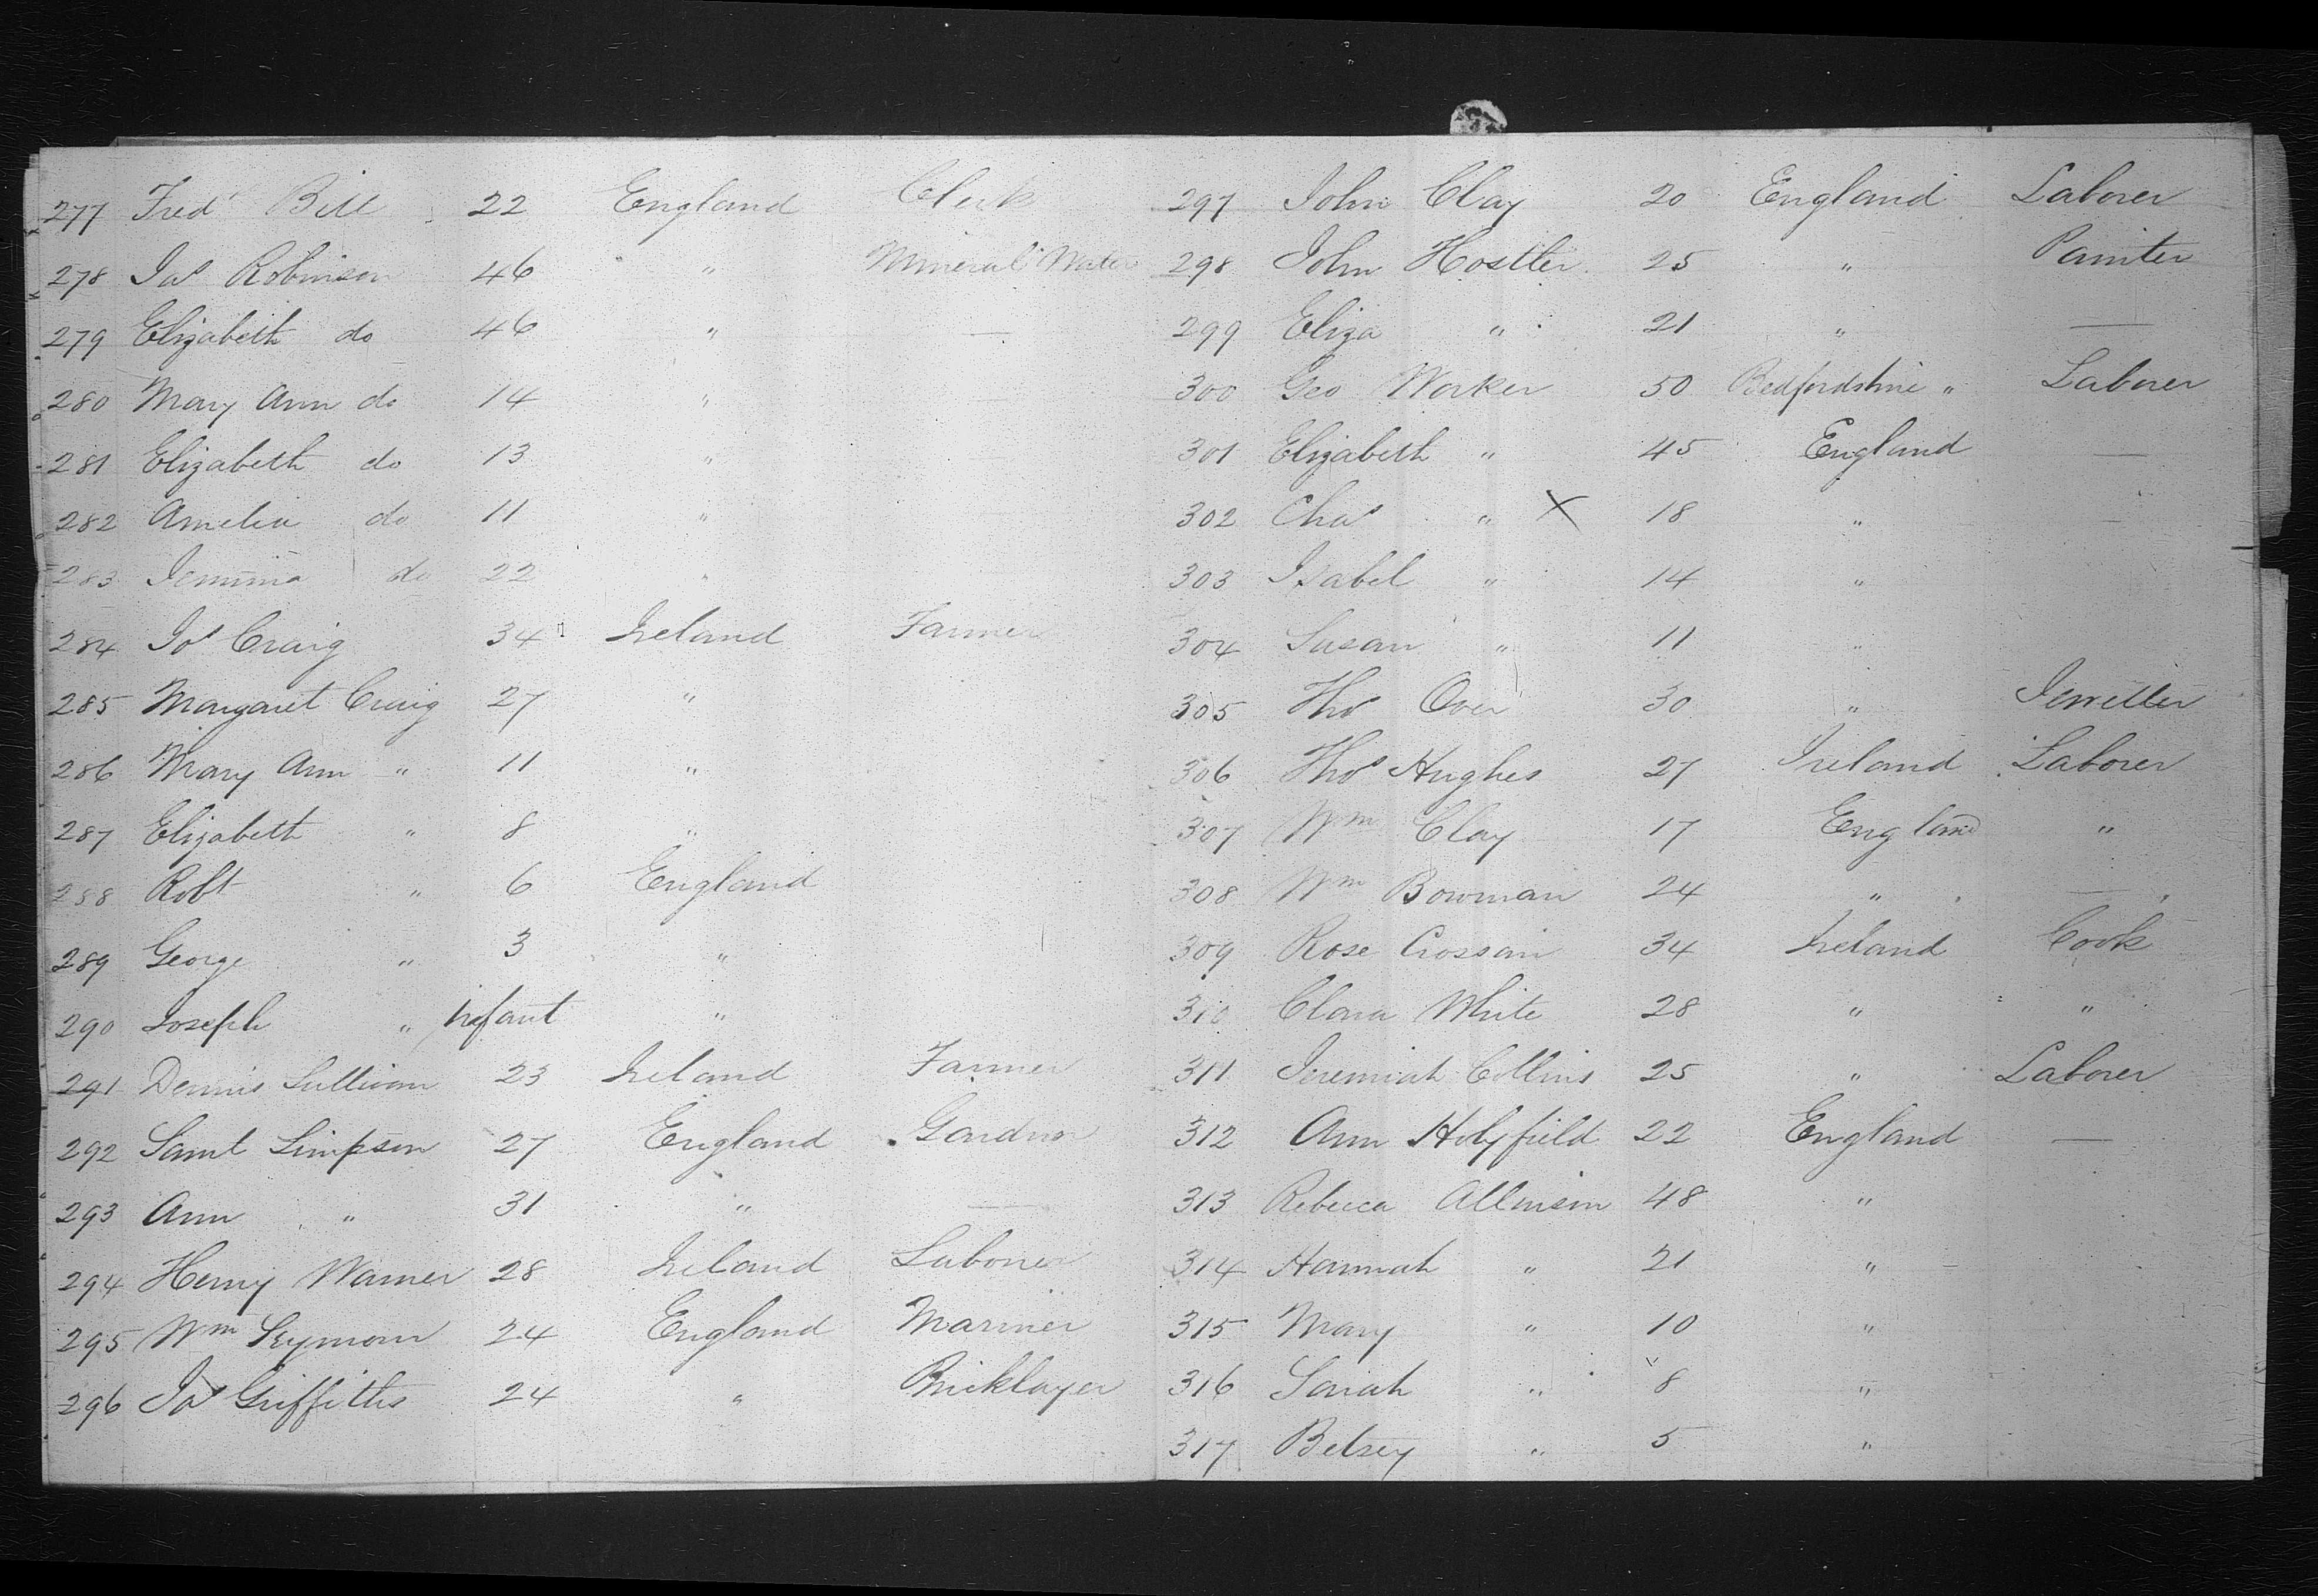 277 Fred Bill 22 England Clerk
278 Jas Robinson 46 " Mineral Water
279 Elizabeth do 46 " —
280 Mary Ann do 14 " —
281 Elizabeth do 13 "
282 Amelia do 11 " —
283 Jemima do 22 "
284 Jos Craig 34 Ireland Farmer
285 Margaret Craig 27 "
286 Mary Ann " 11 "
287 Elizabeth " 8 "
288 Robt " 6 England
289 George " 3 "
290 Joseph " Infant "
291 Dennis Sullivan 23 Ireland Farmer
292 Saml Simpson 27 England Gardner
293 Ann " 31 " —
294 Henry Warner 28 Ireland Laborer
295 Wm Seymour 24 England Mariner
296 Jas Griffiths 24 " Bricklayer
297 John Clay 20 England Laborer
298 John Hostler 25 " Painter
299 Eliza " 21 " —
300 Geo Worker 50 Bedfordshire " Laborer
301 Elizabeth " 45 England —
302 Chas " X 18 " —
303 Isabel " 14 "
304 Susan " 11 "
305 Thos Over 30 " Jeweller
306 Thos Hughes 27 Ireland Laborer
307 Wm Clay 17 England "
308 Wm Bowman 24 " —
309 Rose Crossan 34 Ireland Cook
310 Clara White 28 " "
311 Jeremiah Collins 25 " Laborer
312 Ann Holyfield 22 England —
313 Rebecca Allinson 48 "
314 Hannah " 21 "
315 Mary " 10 "
316 Sarah " 8 "
317 Betsey " 5 "